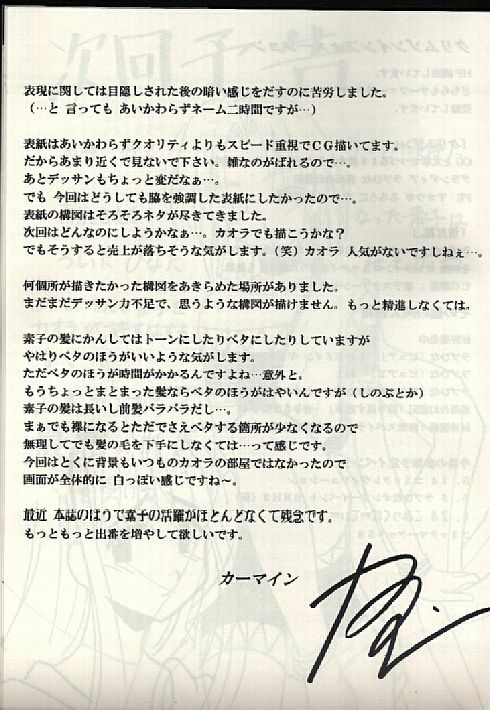 表現に関しては目隠しされた後の暗い感じをだすのに苦労しました。
（…と 言っても あいかわらずネーム二時間ですが…）
表紙はあいかわらずクオリティよりもスピード重視でＣＧ描いてます。
だからあまり近くで見ないで下さい。雑なのがばれるので…。
あとデッサンもちょっと変だなぁ…。
でも 今回はどうしても脇を強調した表紙にしたかったので…。
表紙の構図はそろそろネタが尽きてきました。
次回はどんなのにしようかなぁ…。カオラでも描こうかな？
でもそうすると売上が落ちそうな気がします。（笑）カオラ 人気がないですしねぇ…。
何個所が描きたかった構図をあきらめた場所がありました。
まだまだデッサン力不足で、思うような構図が描けません。もっと精進しなくては。
素子の髪にかんしてはトーンにしたりベタにしたりしていますが
やはりベタのほうがいいような気がします。
ただベタのほうが時間がかかるんですよね…意外と。
もうちょっとまとまった髪ならベタのほうがはやいんですが（しのぶとか）
素子の髪は長いし前髪バラバラだし…。
まぁでも裸になるとただでさえベタする箇所が少なくなるので
無理してでも髪の毛を下手にしなくては…って感じです。
今回はとくに背景もいつものカオラの部屋ではなかったので
画面が全体的に 白っぽい感じですね～。
最近 本誌のほうで素子の活躍がほとんどなくて残念です。
もっともっと出番を増やして欲しいです。
カーマイン
次回予告